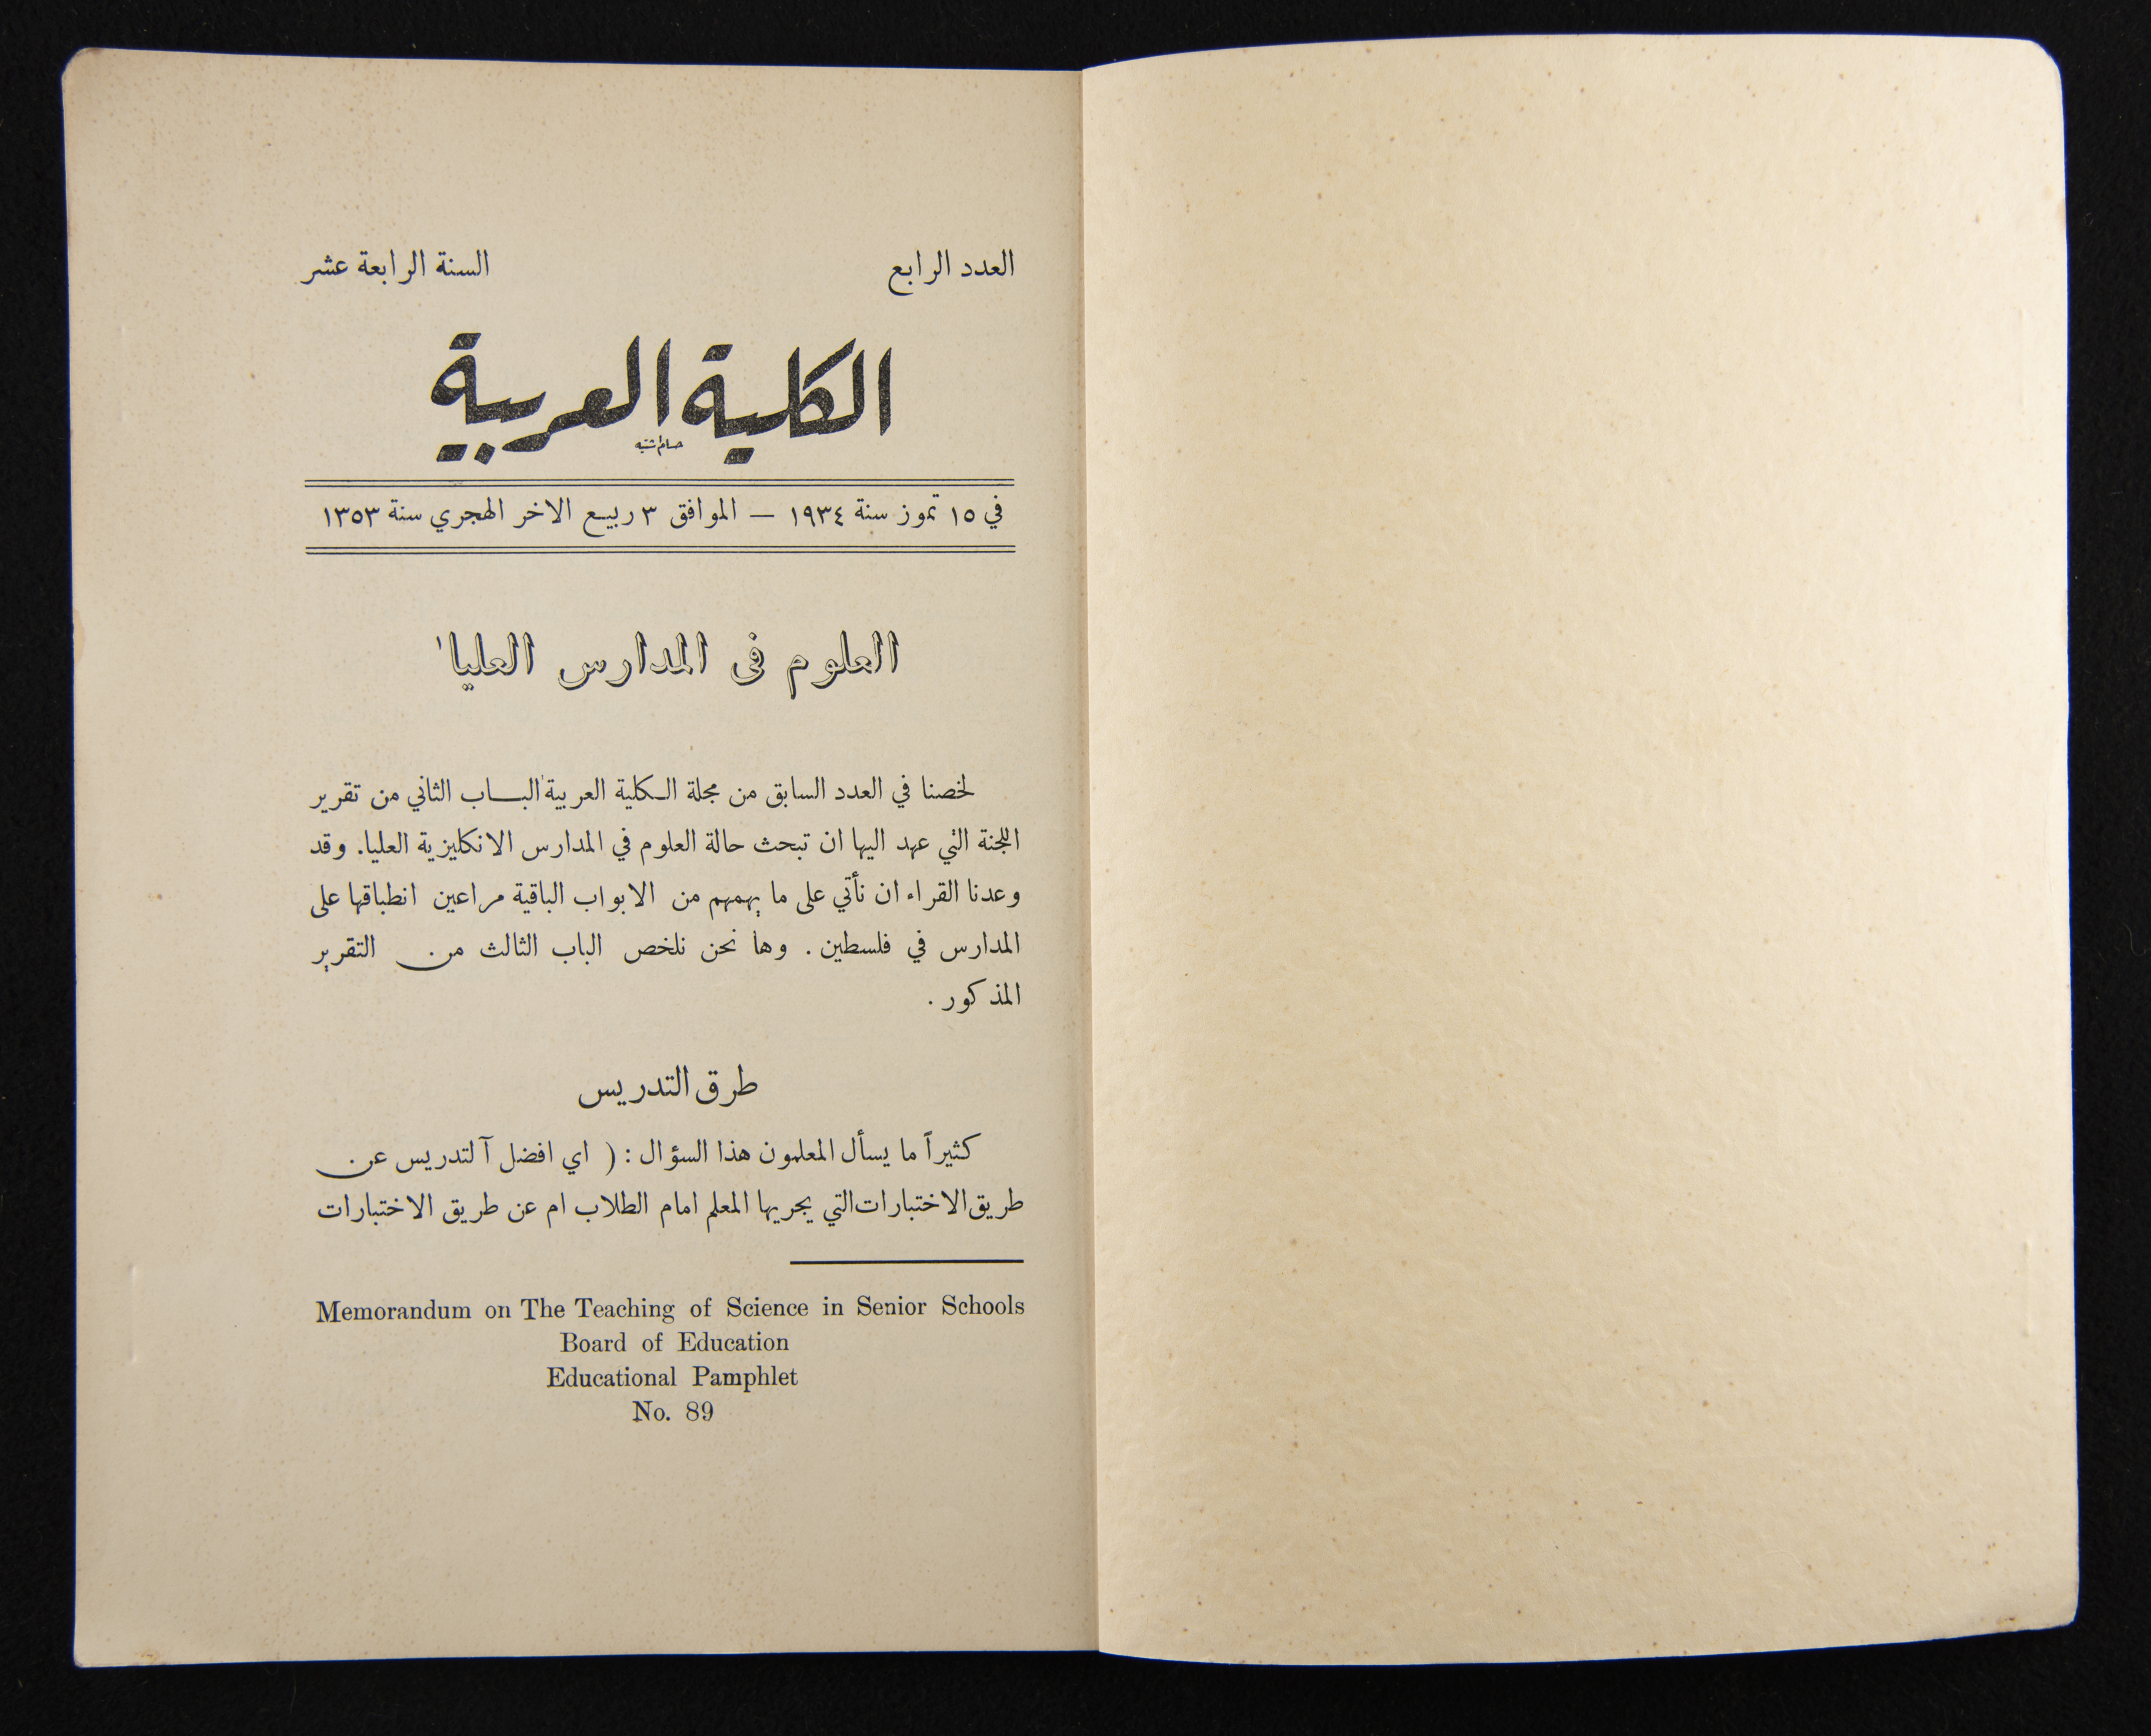 العدد الرابع
السنة الرابعة عشر
الكلية العربية
في ١٥ تموز سنة ١٩٣٤ — الموافق ٣ ربيع الاخر الهجري سنة ١٣٥٣
العلوم فى المدارس العليا'
لخصنا في العدد السابق من مجلة الكلية العربية الباب الثاني من تقرير
اللجنة التي عهد اليها ان تبحث حالة العلوم في المدارس الانكليزية العليا. وقد
وعدنا القراء ان نأتي على ما يهمهم من الابواب الباقية مراعين انطباقها على
المدارس في فلسطين . وها نحن نلخص الباب الثالث من التقرير
المذكور .
طرق التدريس
كثيراً ما يسأل المعلمون هذا السؤال : ( اي افضل آلتدريس عن
طريق الاختبارات التي يجريها المعلم امام الطلاب ام عن طريق الاختبارات
Memorandum on The Teaching of Science in Senior Schools
Board of Education
Educational Pamphlet
No. 89